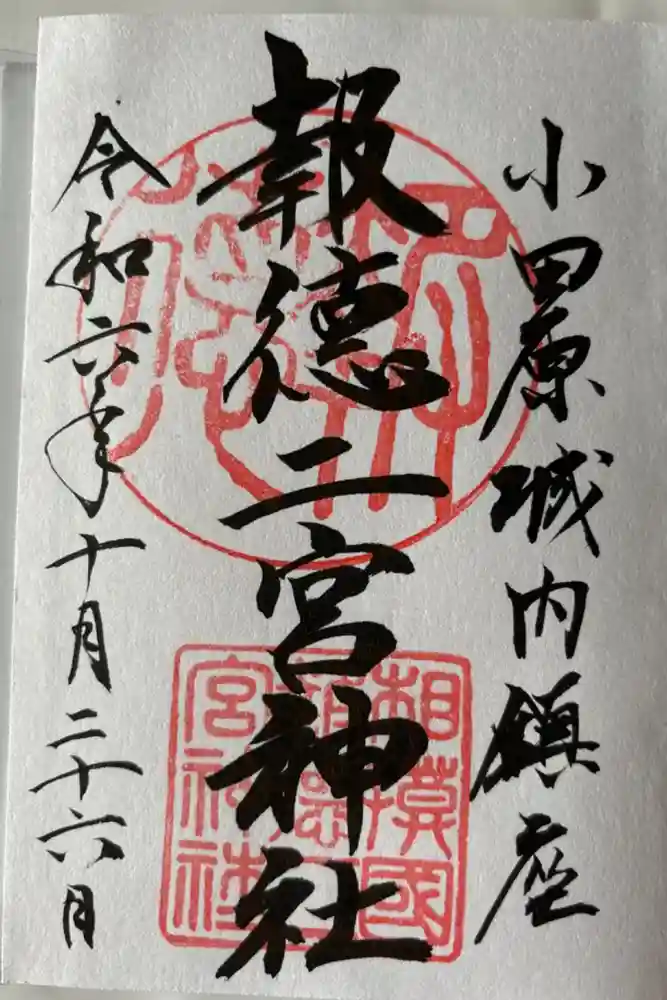 小田原城内鎮座
報徳二宮神社
令和六年十月二十六日
相模國
報徳二
宮神社